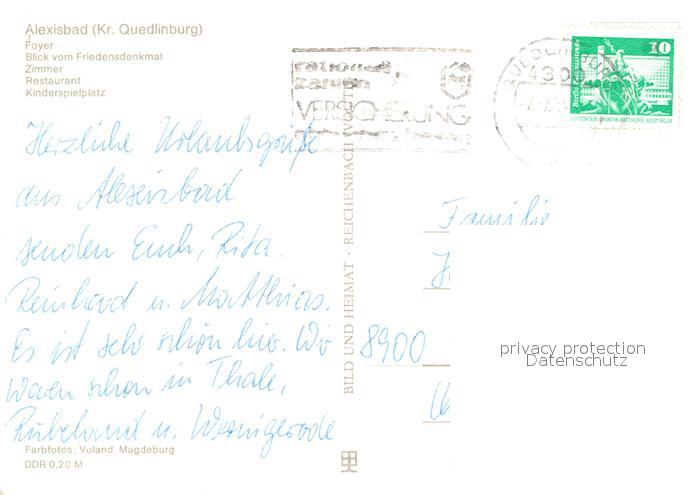 Alexisbad (Kr. Quedlinburg)
Foyer
Blick vom Friedensdenkmal
Zimmer
Restaurant
Kinderspielplatz
Herzliche Urlaubsgrüße
aus Alexisbad
senden Euch, Rita,
Reinhard u. Matthias.
Es ist sehr schön hier. Wir
waren schon in Thale,
Rübeland u. Wernigerode
Farbfotos: Voland, Magdeburg
DDR 0,20 M
BILD UND HEIMAT · REICHENBACH (VOGTL)
VERSICHERUNG
QUEDLINBURG
4300
10
Familie
8900
privacy protection
Datenschutz